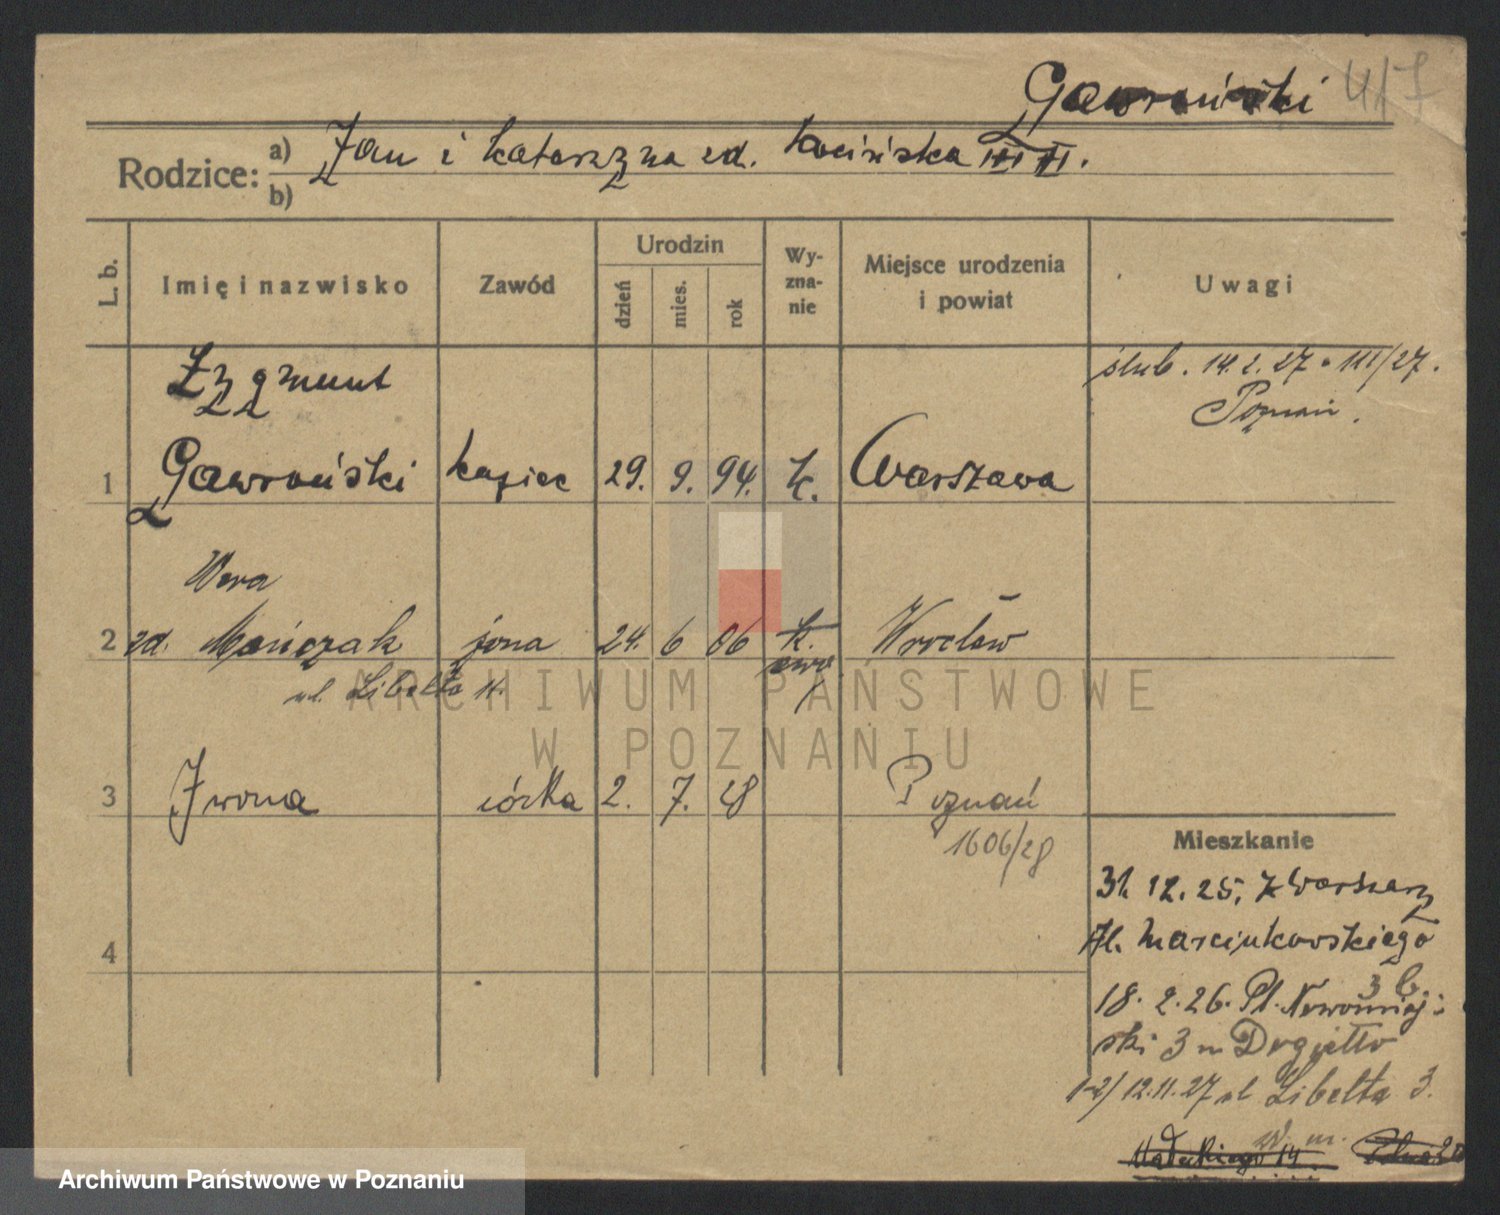 Gawroński
Rodzice:
a) Jan i Katarzyna zd.
b)
L. b.
Imię i nazwisko
Zawód
Urodzin
dzień
mies.
rok
Wy-
zna-
nie
Miejsce urodzenia
i powiat
Uwagi
Zygmunt
ślub. 14.2.27 III/27.
Poznań.
1 Gawroński kupiec 29. 9. 94. k. Warszawa
Wera
2 zd. Mańczak żona 24. 6 06 k. Wrocław
ewa
ul. Libelta 11.
ARCHIWUM PAŃSTWOWE
W POZNANIU
3 Iwona córka 2. 7. 28 Poznań
1606/28
Mieszkanie
31. 12. 25. z Warszawy
Al. Marcinkowskiego
3 b.
18. 2. 26. Pl. Nowomiej-
ski 3
4
1-2/ 12.11.27 ul Libelta 3.
Archiwum Państwowe w Poznaniu